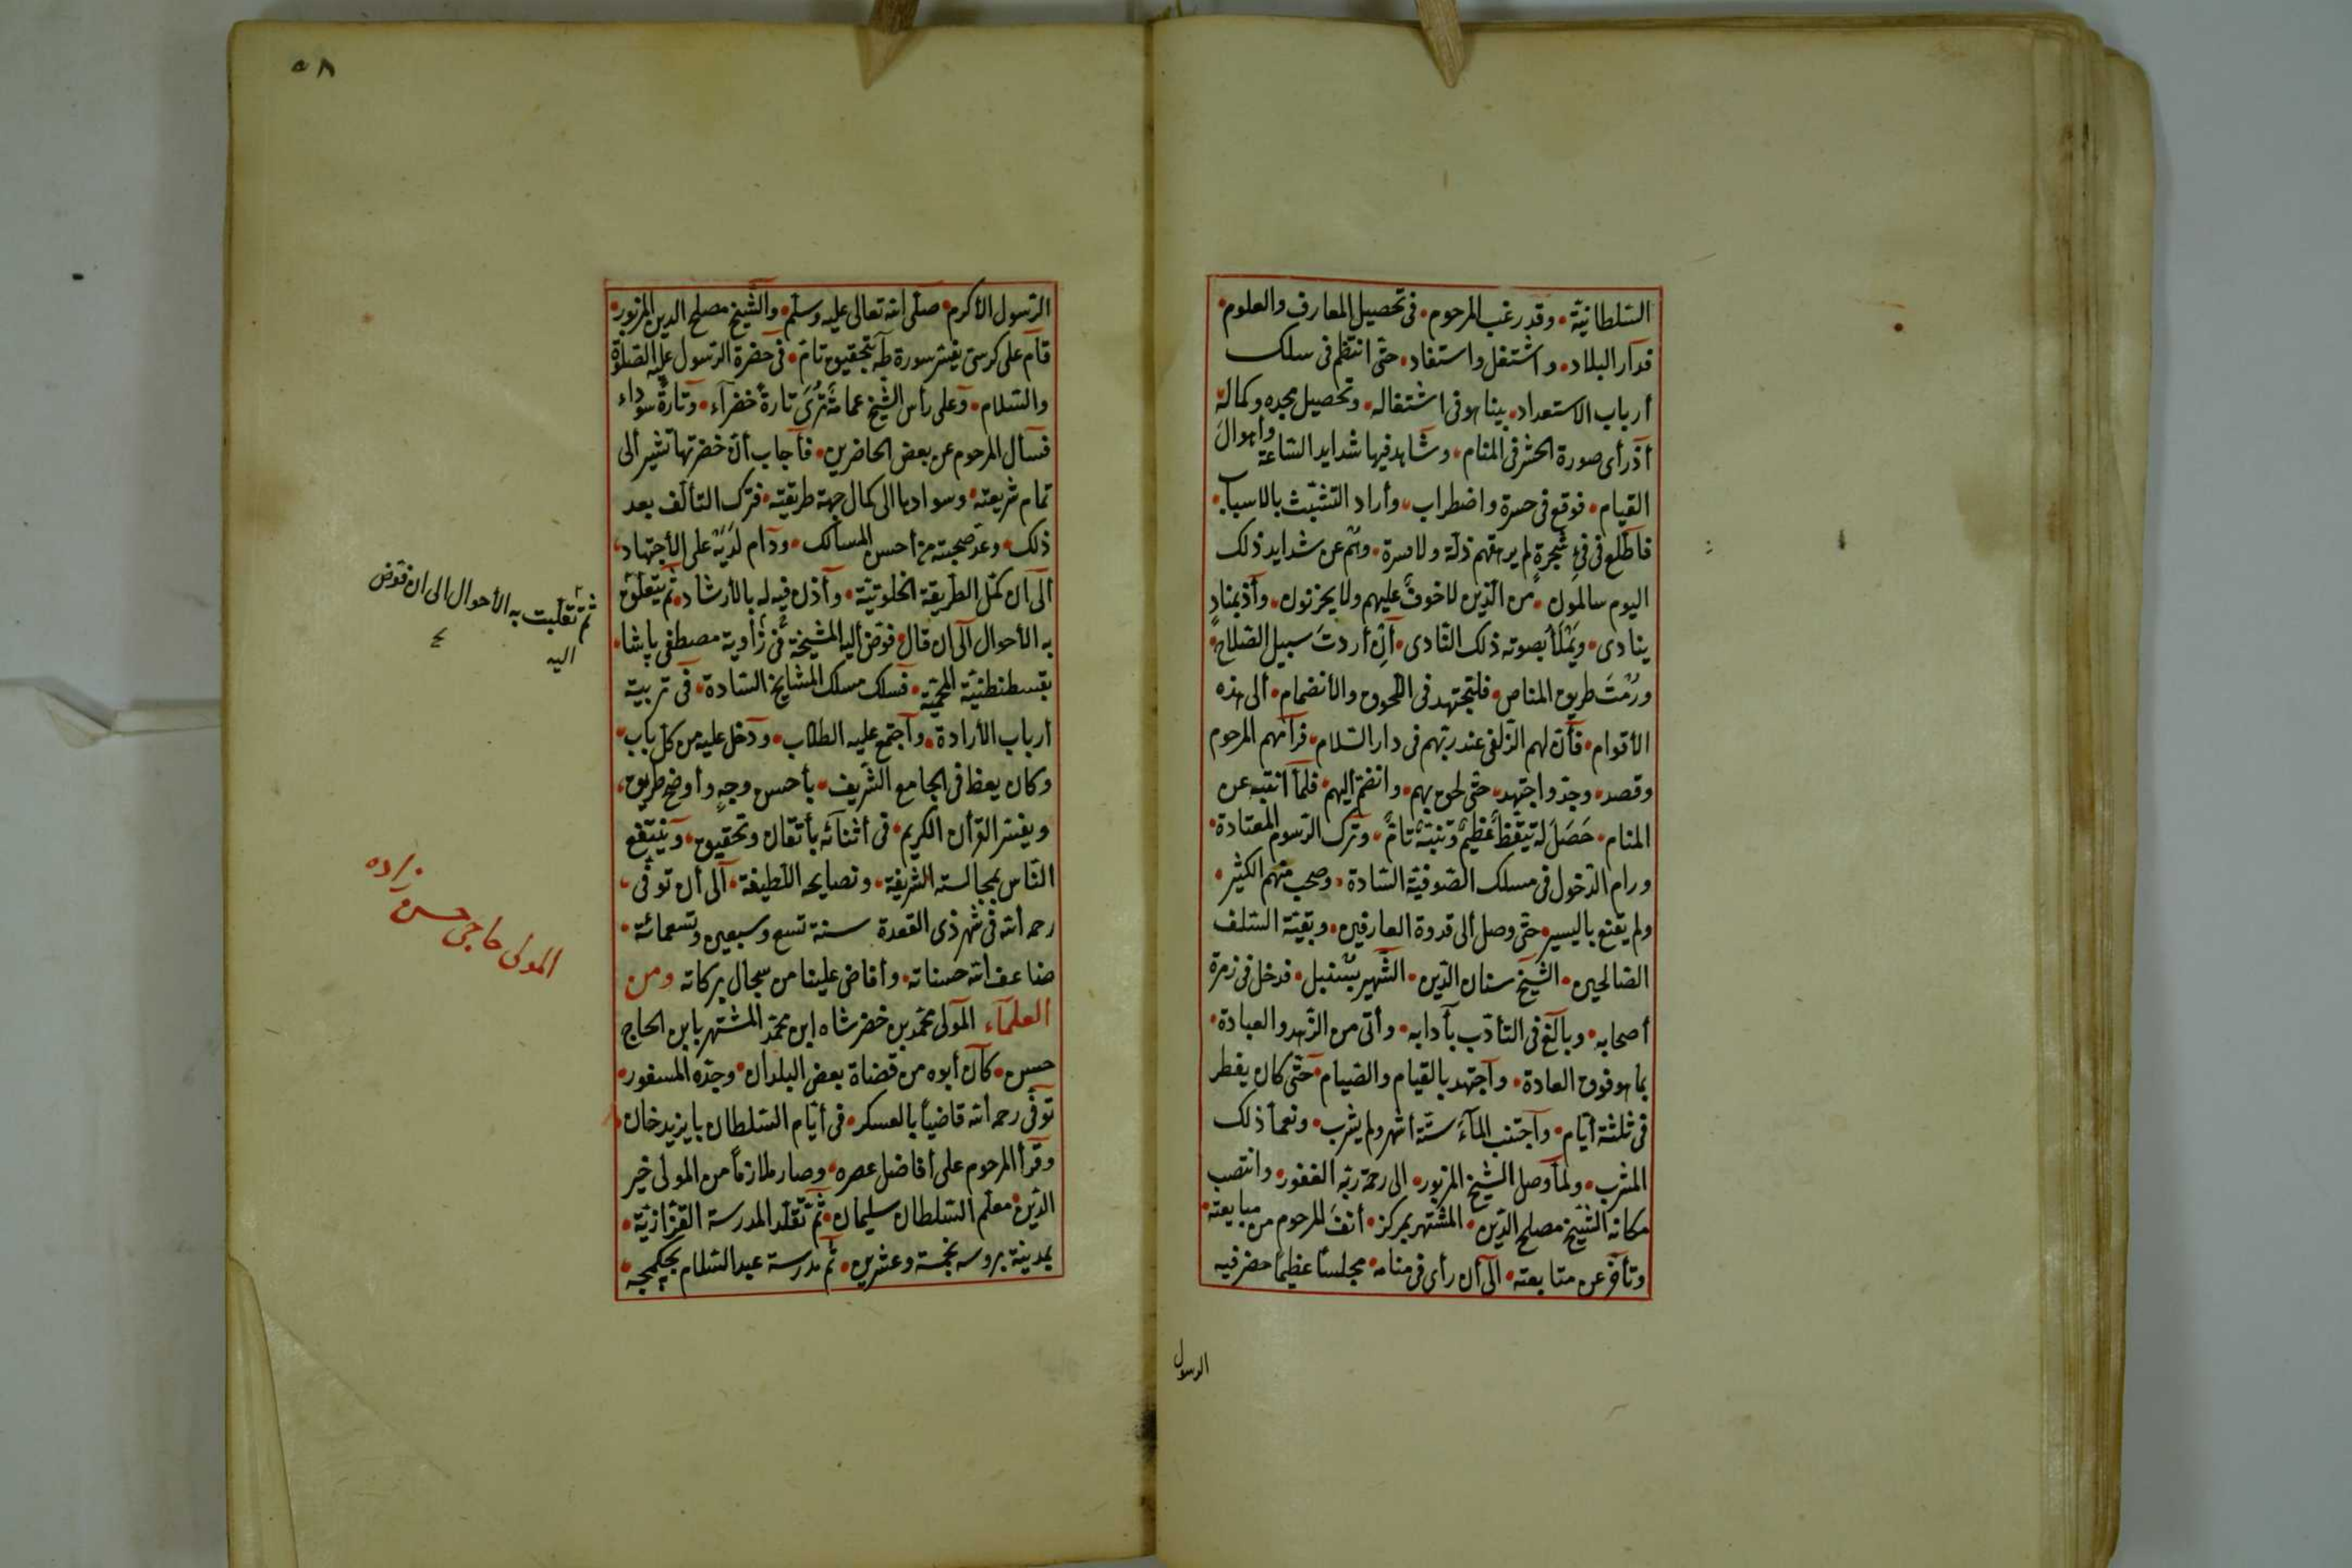 السلطانيّة • وقد رغب المرحوم • فى تحصيل المعارف والعلوم •
فدار البلاد • واشتغل واستفاد • حتّى انتظم فى سلك
أرباب الاستعداد • بينا هو فى اشتغاله • وتحصيل مجده وكماله •
أذ رأى صورة الحشر فى المنام • وشاهد فيها شدايد الساعة وأهوال
القيام • فوقع فى حسرة واضطراب • وأراد التشبّث بالاسباب •
فاطّلع فى فىءِ شجرةٍ لم يرهقهم ذلّة ولا قسرة • وهُم عن شدايد ذلك
اليوم سالمون • من الّذين لا خوفٌ عليهم ولا يحزنون • وأذ بمنادٍ
ينادى • ويَمْلَأ بصوته ذلك النّادى • أنْ أردتَ سبيل الصّلاح •
ورُمْتَ طريق المناص • فلتجتهد فى اللّحوق والأنضمام • ألى هذه
الأقوام • فأنّ لهم الزّلفى عند ربّهم فى دار السّلام • فرآهم المرحوم
وقصد • وجدّ واجتهد • حتّى لحق بهم • وانضمّ أليهم • فلمّا انتبه عن
المنام • حَصَلَ له تيقّظٌ عظيمٌ وتنبّهٌ تامٌّ • وترك الرّسوم المعتادة •
ورام الدّخول فى مسلك الصّوفيّة السّادة • وصحب منهم الكثير •
ولم يقنع باليسير • حتّى وصل ألى قدوة العارفين • وبقيّة السّلف
الصّالحين • الشّيخ سنان الدّين • الشّهير بسُنبل • فدخل فى زمرة
أصحابه • وبالغ فى التأدّب بآدابه • وأتى من الزّهد والعبادة •
بما هو فوق العادة • واجتهد بالقيام والصّيام • حتّى كان يفطر
فى ثلثة أيّام • واجتنب المآءَ ستّة أشهر ولم يشرب • ونعمّا ذلك
المشرب • ولمّا وصل الشّيخ المزبور • الى رحمة ربّه الغفور • وانتصب
مكانه الشّيخ مصلح الدّين • المشتهر بمركز • أنفَ المرحوم من مبايعته •
وتأخّر عن متابعته • الى أن رأى فى منامه • مجلساً عظيماً حضر فيه
الرسول
٥٨
الرّسول الأكرم • صلّى الله تعالى عليه وسلّم • والشّيخ مصلح الدين المزبور •
قام على كرسىّ يفسّر سورة طه بتحقيق تامّ • فى حضرة الرّسول عليه الصّلوة
والسّلام • وعلى رأس الشّيخ عمامةٌ تُرَى تارةً خضرآء • وتارةً سوداء
فسأل المرحوم عن بعض الحاضرين • فأجاب أنّ خضرتها تشير ألى
تمام شريعته • وسوادها الى كمال جهة طريقته • فترك التألّف بعد
ذلك • وعدّ صحبته من أحسن المسالك • ودام لديه على الأجتهاد •
الى أن كمّل الطّريقة الخلوتيّة • وأذن فيه له بالأرشاد • ثم يتعلّق
به الأحوال الى ان قال فوّض أليه المشيخة فى زاوية مصطفى پاشا •
بقسطنطنيّة المحميّة • فسلك مسلك المشايخ السّادة • فى تربية
أرباب الأرادة • واجتمع عليه الطلّاب • ودخل عليه من كلّ باب •
وكان يعظ فى الجامع الشّريف • بأحسن وجهٍ وأوضح طريق •
ويفسّر القرأن الكريم • فى أثنائه بأتقان وتحقيق • وينتفع
النّاس بمجالسته الشّريفة • ونصايحه اللّطيفة • الى أن توفّى •
رحمه الله فى شهر ذى القعدة سنة تسع وسبعين وتسعمائة •
ضاعف الله حسناته • وأفاض علينا من سجال بركاته ومن
العلمآء المولى محمّد بن خضر شاه ابن محمّد المشتهر بابن الحاج
حسن • كان أبوه من قضاة بعض البلدان • وجدّه المسفور •
توفّى رحمه الله قاضياً بالعسكر • فى أيّام السّلطان بايزيد خان •
وقرأ المرحوم على أفاضل عصره • وصار ملازماً من المولى خير
الدّين • معلّم السّلطان سليمان • ثمّ تقلّد المدرسة القزّازيّة •
بمدينة بروسه بخمسة وعشرين • ثمّ مدرسة عبد السّلام بچكمجه •
ثمّ تقلّبت به الأحوال الى ان فوّض
اليه
المولى حاجى حسن زاده